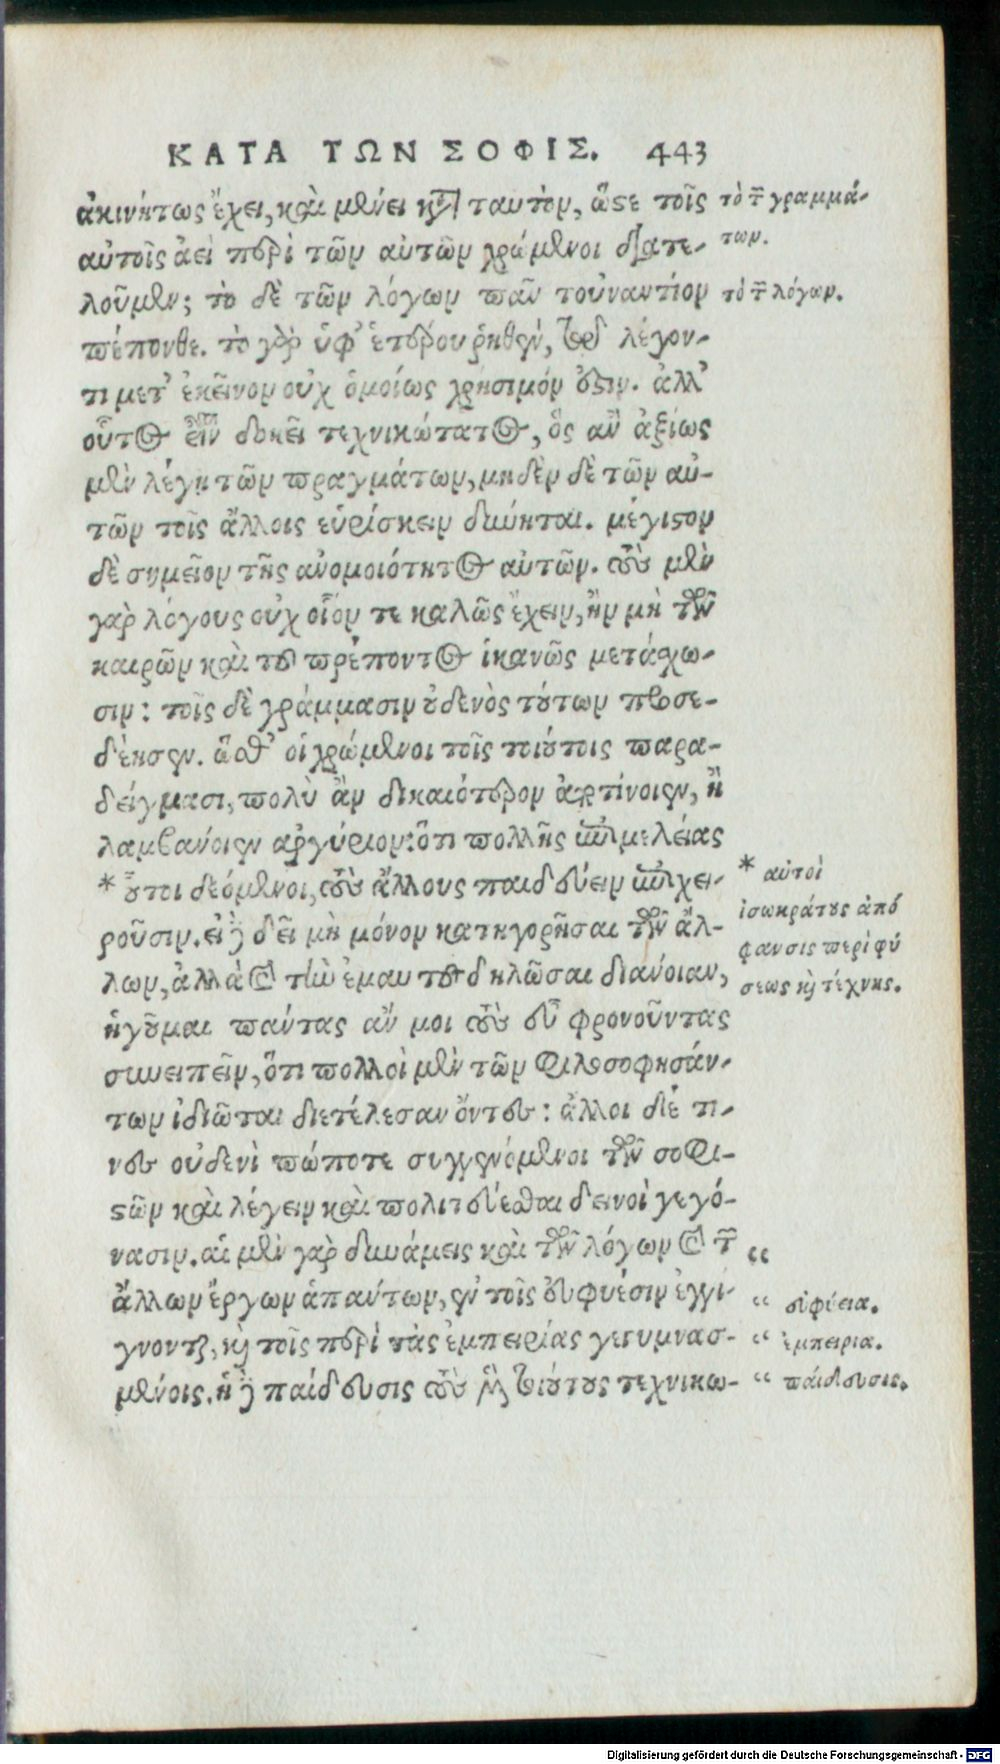 ΚΑΤΑ ΤΩΝ ΣΟΦΙΣ. 443
ἀκινήτως ἔχει, καὶ μένει κατὰ ταυτὸν, ὥστε τοῖς
αὐτοῖς ἀεὶ περὶ τῶν αὐτῶν χρώμενοι διατε-
λοῦμεν; τὸ δὲ τῶν λόγων πᾶν τοὐναντίον
πέπονθε. τὸ γὰρ ὑφ’ ἑτέρου ῥηθὲν, τῷ λέγον-
τι μετ’ ἐκεῖνον οὐχ ὁμοίως χρήσιμόν ἐστιν. ἀλλ’
οὗτος εἶναι δοκεῖ τεχνικώτατος, ὃς ἂν ἀξίως
μὲν λέγῃ τῶν πραγμάτων, μηδὲν δὲ τῶν αὐ-
τῶν τοῖς ἄλλοις εὑρίσκειν δύνηται. μέγιστον
δὲ σημεῖον τῆς ἀνομοιότητος αὐτῶν. τοὺς μὲν
γὰρ λόγους οὐχ οἷόν τε καλῶς ἔχειν, ἢν μὴ τῶν
καιρῶν καὶ τοῦ πρέποντος ἱκανῶς μετάχω-
σιν: τοῖς δὲ γράμμασιν οὐδενὸς τούτων προσε-
δέησεν. ὥσθ’ οἱ χρώμενοι τοῖς τοιούτοις παρα-
δείγμασι, πολὺ ἂν δικαιότερον ἀποτίνοιεν, ἢ
λαμβάνοιεν ἀργύριον: ὅτι πολλῆς ἐπιμελείας
* οὗτοι δεόμενοι, τοὺς ἄλλους παιδεύειν ἐπιχει-
ροῦσιν. εἰ δὲ δεῖ μὴ μόνον κατηγορῆσαι τῶν ἄλ-
λων, ἀλλὰ καὶ τὴν ἐμαυτοῦ δηλῶσαι διάνοιαν,
ἡγοῦμαι πάντας ἄν μοι τοὺς εὖ φρονοῦντας
συνειπεῖν, ὅτι πολλοὶ μὲν τῶν φιλοσοφησάν-
των ἰδιῶται διετέλεσαν ὄντες: ἄλλοι δέ τι-
νες οὐδενὶ πώποτε συγγενόμενοι τῶν σοφι-
στῶν καὶ λέγειν καὶ πολιτεύεσθαι δεινοὶ γεγό-
νασιν. αἱ μὲν γὰρ δυνάμεις καὶ τῶν λόγων καὶ τῶν
ἄλλων ἔργων ἁπάντων, ἐν τοῖς εὐφυέσιν ἐγγί-
γνονται, καὶ τοῖς περὶ τὰς ἐμπειρίας γεγυμνασ-
μένοις. ἡ δὲ παίδευσις τοὺς μὲν τοιούτους τεχνικω-
τὸ τῶν γραμμά-
των.
τὸ τῶν λόγων.
* αὐτοὶ
ἰσωκράτους ἀπό
φανσις περὶ φύ
σεως καὶ τέχνης.
“
“ εὐφύεια.
“ ἐμπειρια.
“ παίδευσις.
Digitalisierung gefördert durch die Deutsche Forschungsgemeinschaft - DFG